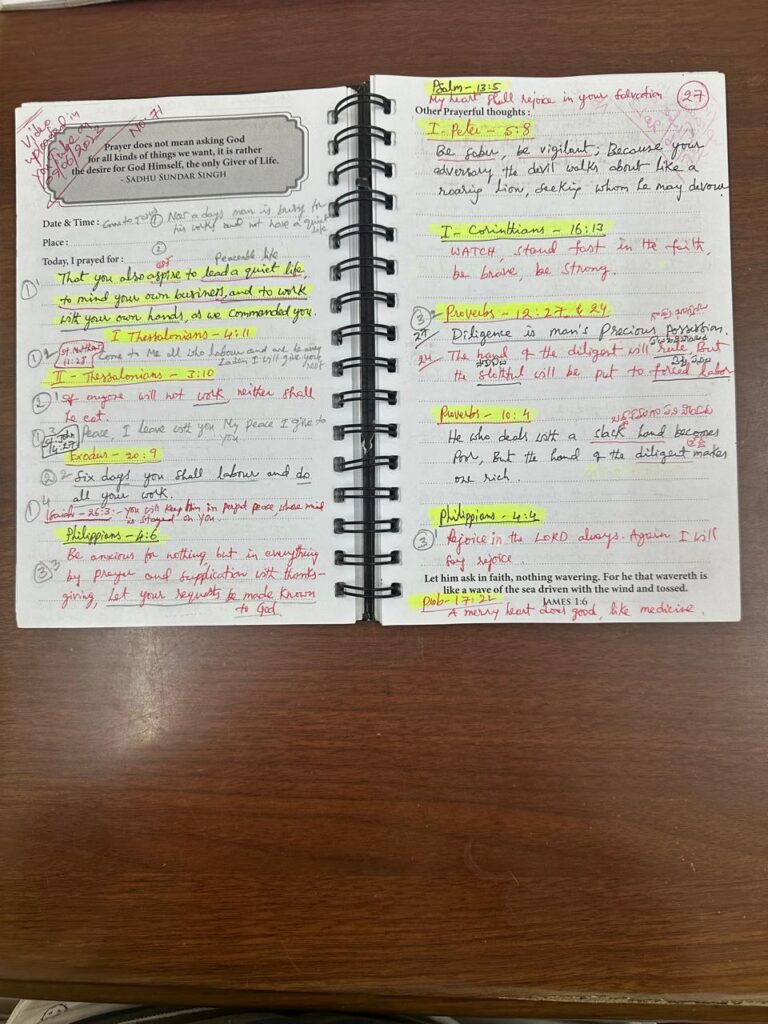 Video uploaded in
YouTube on
No. 71
Prayer does not mean asking God
for all kinds of things we want, it is rather
the desire for God Himself, the only Giver of Life.
- SADHU SUNDAR SINGH
Date & Time : Come to ① Now a days man is busy for
his works and not have a quiet
life
Place :
②
Today, I prayed for : Peaceable life
①' That you also aspire to lead a quiet life,
to mind your own business, and to work
with your own hands, as we commanded you.
I Thessalonians - 4:11
① 2 St. Matthew 11:28 Come to Me all who labour and are heavy
laden I will give you rest
II - Thessalonians - 3:10
②' If anyone will not work neither shall
he eat.
① 3 St. John 14:27 Peace, I leave with you My peace I give to
you
Exodus - 20:9
② 2 Six days you shall labour and do
all your work.
① 4 Isaiah - 26:3 - you will keep him in perfect peace, whose mind
is stayed on you.
Philippians - 4:6
③ 3 Be anxious for nothing, but in everything
by prayer and supplication with thanks-
giving, Let your requests be made known
to God
Psalm - 13:5
My heart shall rejoice in your salvation
27
Other Prayerful thoughts :
I - Peter - 5:8
Be sober, be vigilant; Because your
adversary the devil walks about like a
roaring lion, seeking whom he may devour
I - Corinthians - 16:13
WATCH, stand fast in the faith,
be brave, be strong.
③ 2 Proverbs - 12:27 & 24
27 Diligence is man's Precious Possession.
24 The hand of the diligent will rule But
the slothful will be put to forced labor
Proverbs - 10:4
He who deals with a slack hand becomes
Poor, But the hand of the diligent makes
one rich.
Philippians - 4:4
③' Rejoice in the LORD always. Again I will
say rejoice.
Let him ask in faith, nothing wavering. For he that wavereth is
like a wave of the sea driven with the wind and tossed.
JAMES 1:6
Prob - 17:22
A merry heart does good, like medicine.